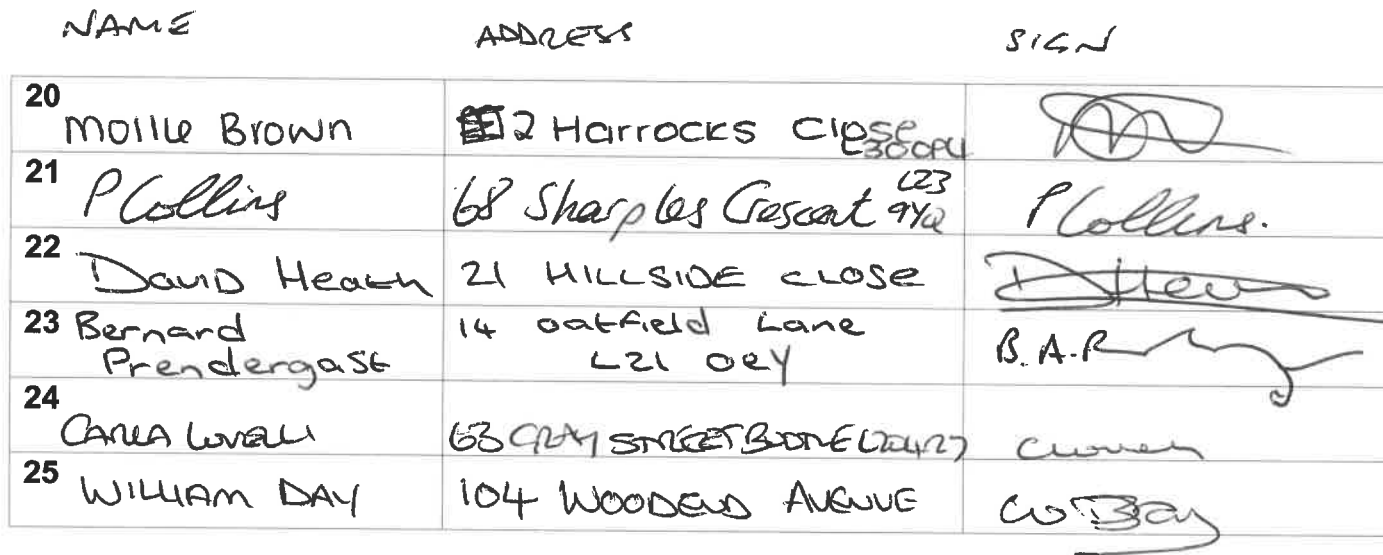 NAME ADDRESS SIGN
20 Mollie Brown 2 Harrocks Close L30 0PU
21 P Collins 68 Sharples Crescent L23 9YQ P Collins.
22 David Heath 21 HILLSIDE CLOSE
23 Bernard 14 oatfield Lane
Prendergast L21 0EY B. A. P
24 CARLA 63 GRAY STREET BOOTLE L20 4RZ
25 WILLIAM DAY 104 WOODEND AVENUE W Day